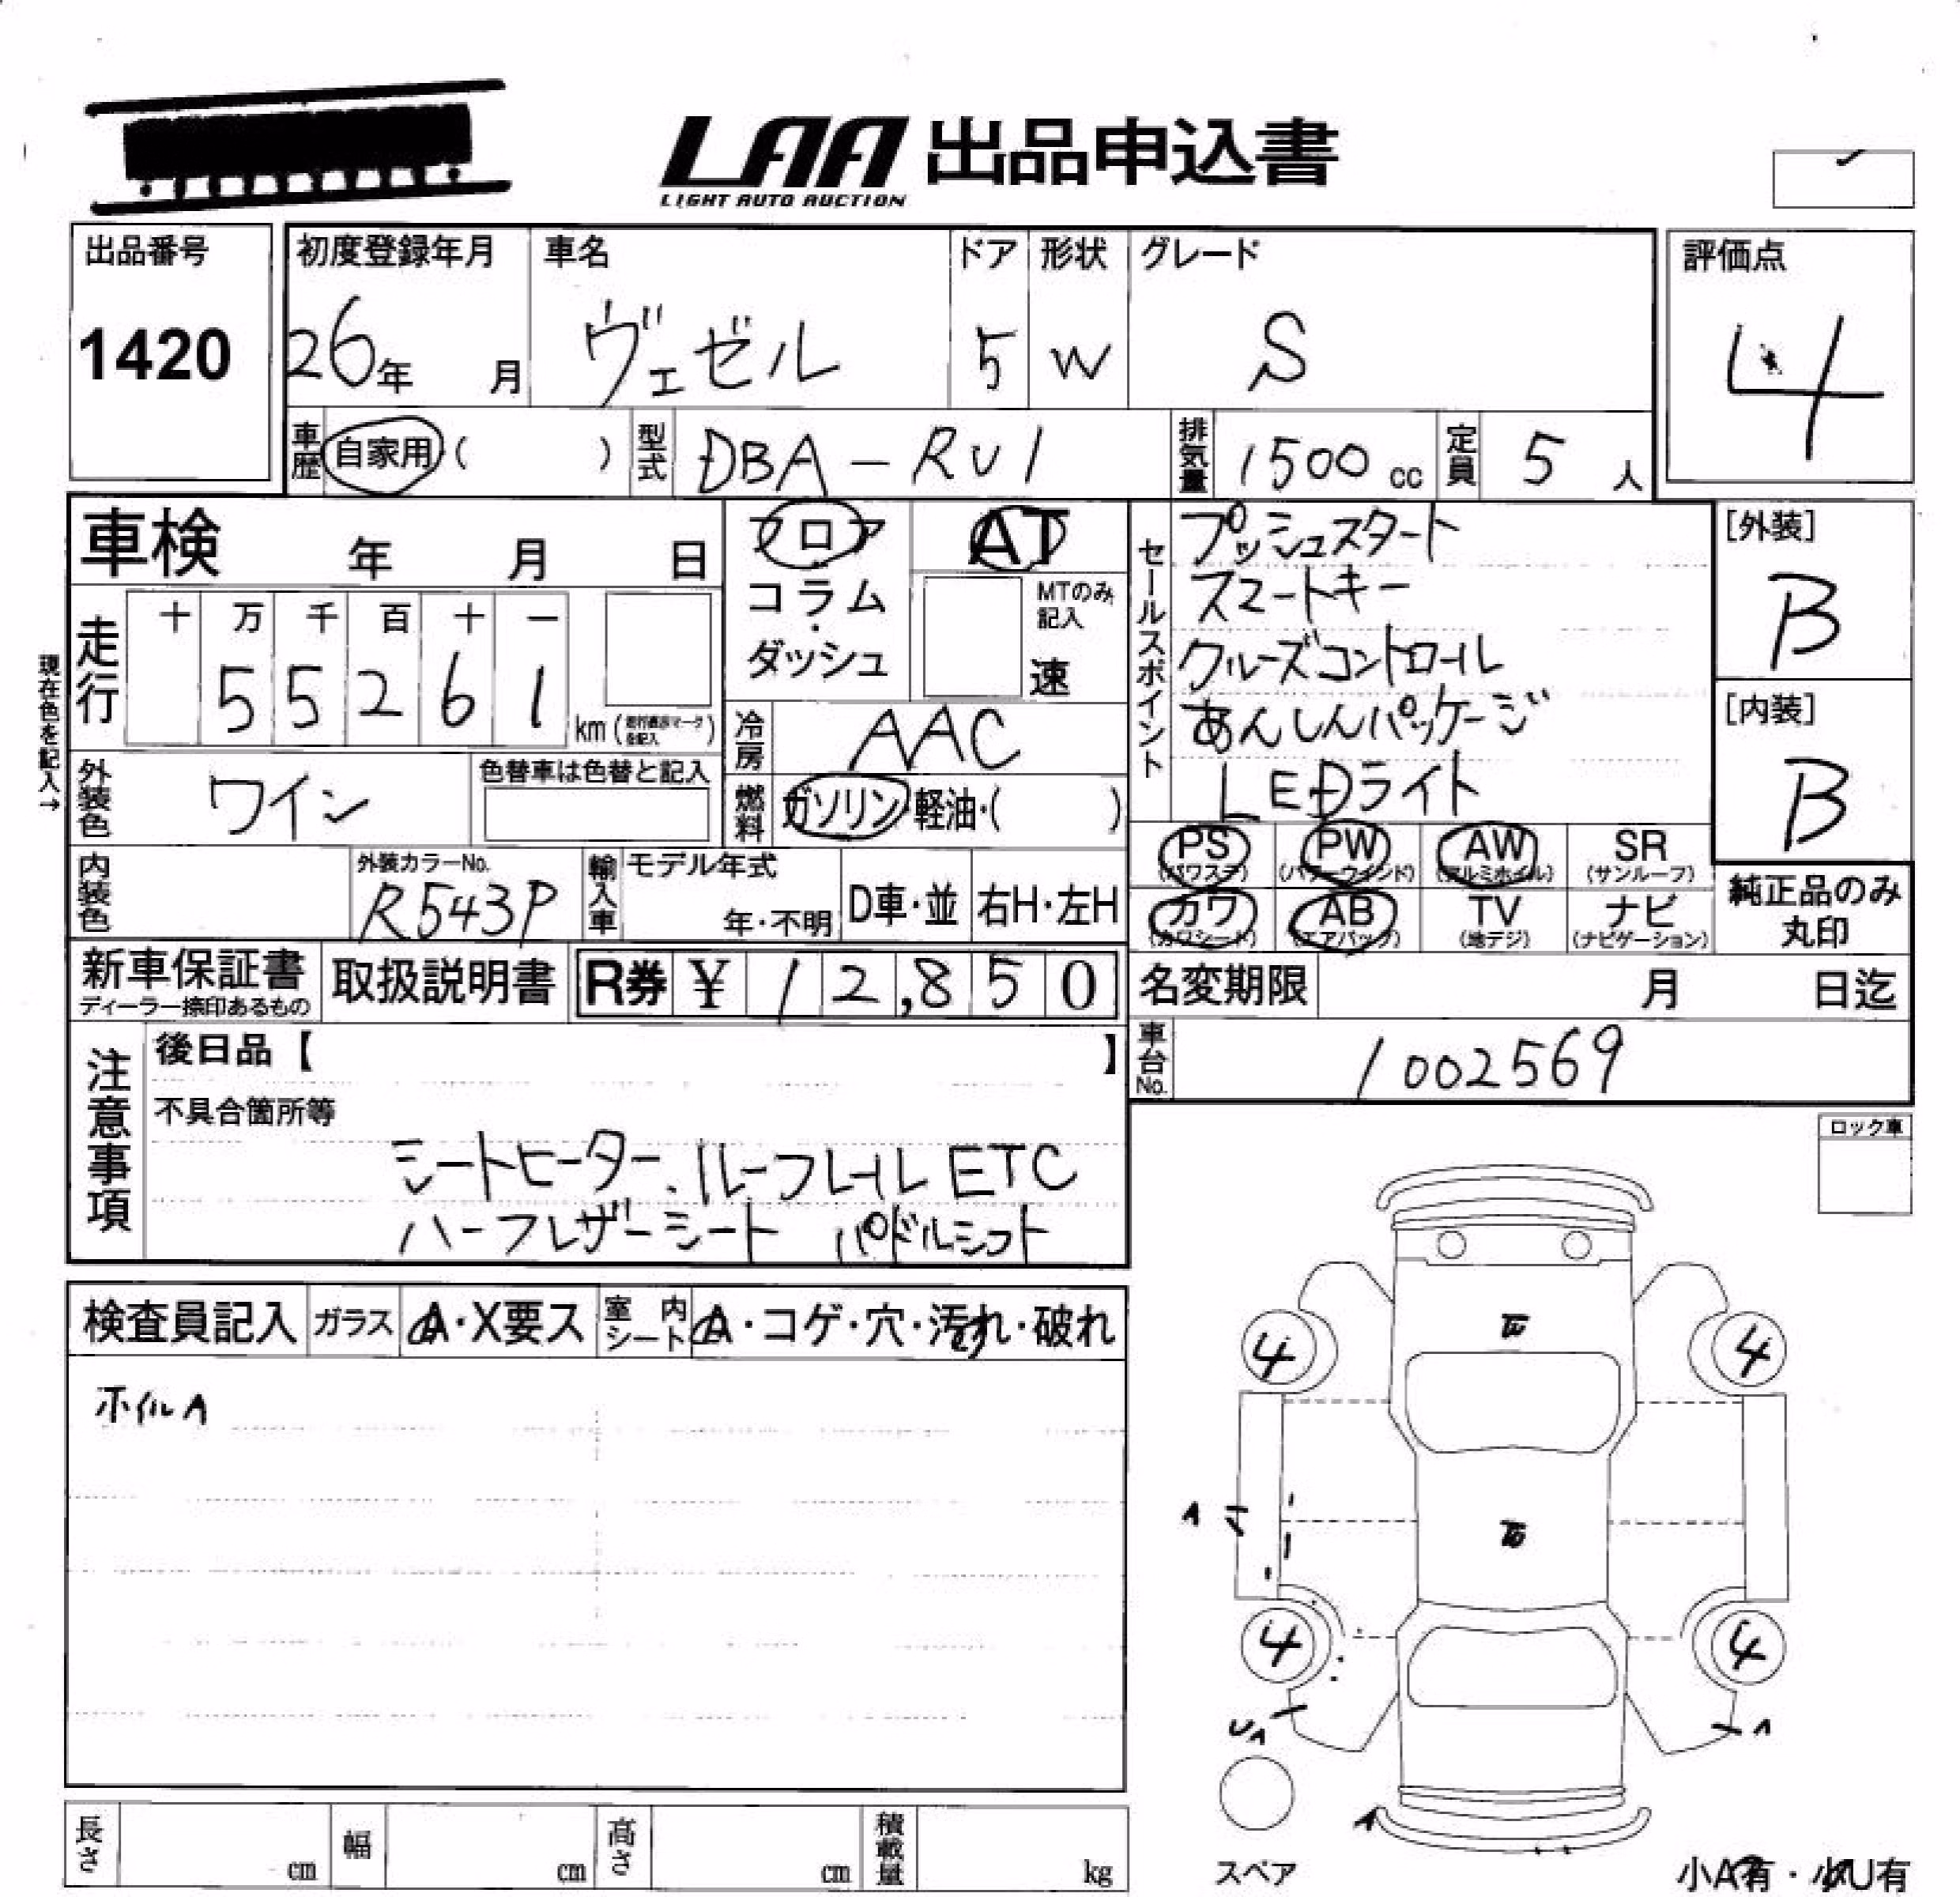 LAA 出品申込書
LIGHT AUTO AUCTION
出品番号
1420
初度登録年月
26年 月
車名
ヴェゼル
ドア
5
形状
W
グレード
S
評価点
4
車歴 自家用 ( )
型式 DBA-RU1
排気量 1500 cc
定員 5 人
車検 年 月 日
フロア
コラム
・
ダッシュ
AT
MTのみ
記入
速
セールスポイント
プッシュスタート
スマートキー
クルーズコントロール
あんしんパッケージ
LEDライト
[外装]
B
[内装]
B
現在色を記入→
走行
十 万 千 百 十 一
5 5 2 6 1
km ( )
冷房 AAC
外装色 ワイン
色替車は色替と記入
燃料 ガソリン・軽油・( )
内装色
外装カラーNo.
R543P
輸入車
モデル年式
年・不明
D車・並
右H・左H
PS
(パワステ)
PW
(パワーウインド)
AW
(アルミホイル)
SR
(サンルーフ)
カワ
(カワシート)
AB
(エアバッグ)
TV
(地デジ)
ナビ
(ナビゲーション)
純正品のみ
丸印
新車保証書
ディーラー捺印あるもの
取扱説明書
R券 ¥ 12,850
名変期限 月 日迄
車台No. 1002569
注意事項
後日品【 】
不具合箇所等
シートヒーター、ルーフレール ETC
ハーフレザーシート パドルシフト
ロック車
検査員記入
ガラス A・X要ス
室内シート A・コゲ・穴・汚れ・破れ
ホイルA
4 4
A
4 4
UA A
A
スペア
長さ cm
幅 cm
高さ cm
積載量 kg
小A有・小U有